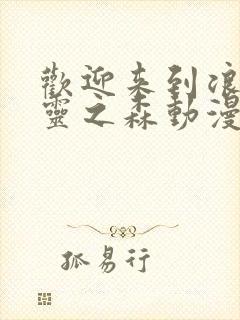 歡迎来到浪
靈之森動漫
孤易行